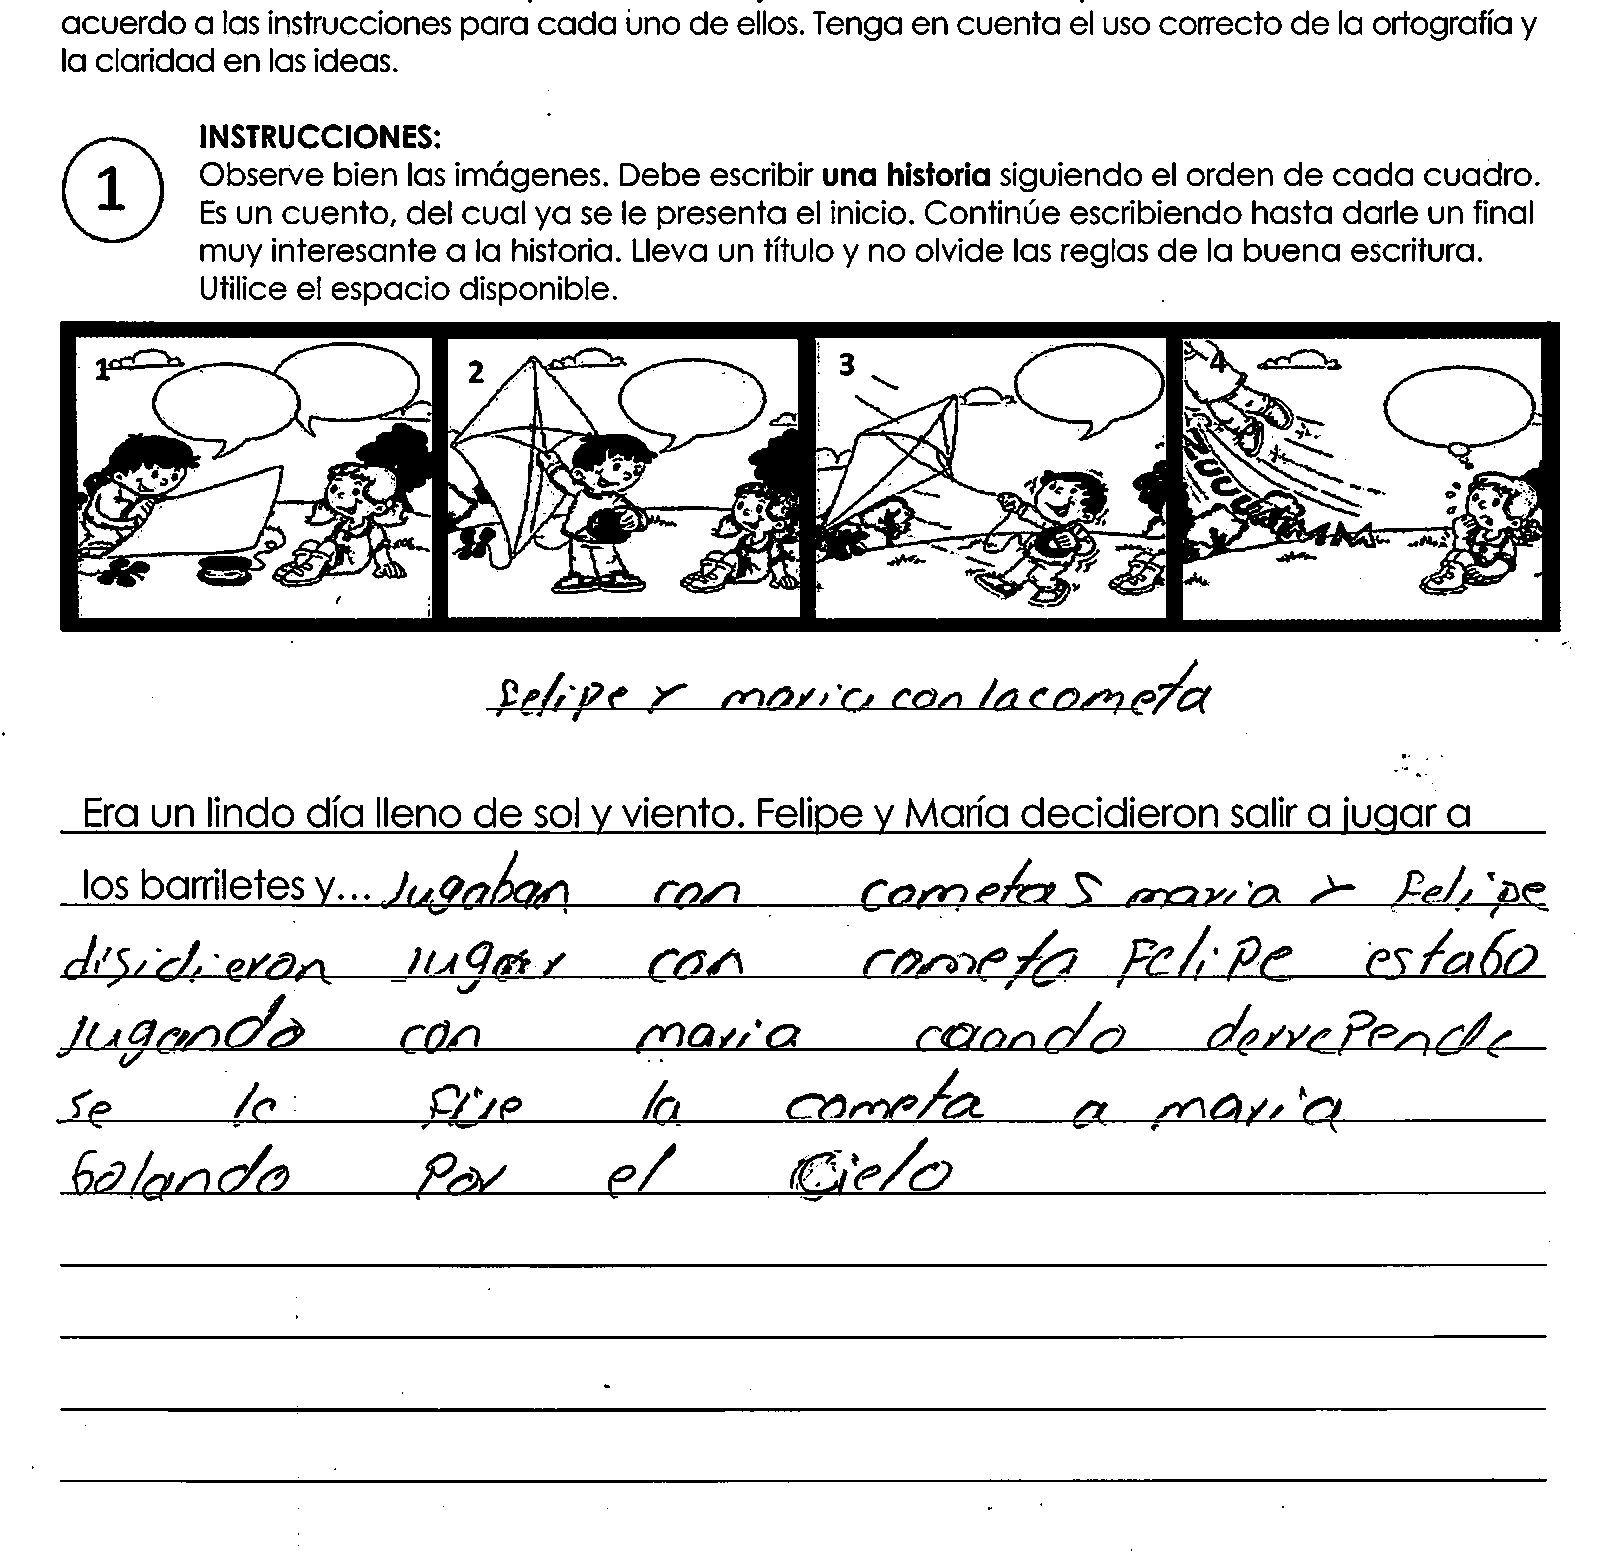 acuerdo a las instrucciones para cada uno de ellos. Tenga en cuenta el uso correcto de la ortografía y
la claridad en las ideas.
1
INSTRUCCIONES:
Observe bien las imágenes. Debe escribir una historia siguiendo el orden de cada cuadro.
Es un cuento, del cual ya se le presenta el inicio. Continúe escribiendo hasta darle un final
muy interesante a la historia. Lleva un título y no olvide las reglas de la buena escritura.
Utilice el espacio disponible.
1 2 3 4
Felipe y maria con la cometa
Era un lindo día lleno de sol y viento. Felipe y María decidieron salir a jugar a
los barriletes y... Jugaban con cometas maria y Felipe
disidieron jugar con cometa Felipe estabo
jugando con maria caando derrepende
se le fije la cometa a maria
bolando por el Cielo